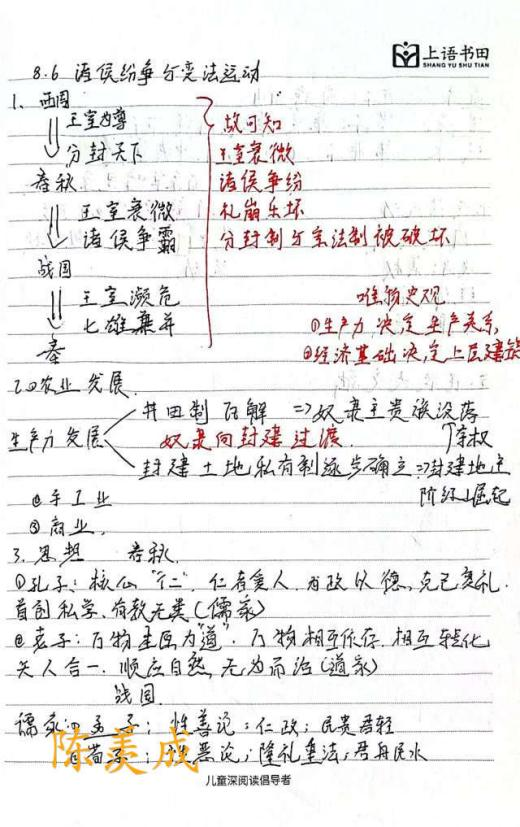 上语书田
SHANG YU SHU TIAN
8.6 诸侯纷争与变法运动
1、西周
王室为尊
分封天下
春秋
王室衰微
诸侯争霸
战国
王室濒危
七雄兼并
秦
故可知
王室衰微
诸侯争纷
礼崩乐坏
分封制与宗法制被破坏
唯物史观
①生产力决定生产关系,
②经济基础决定上层建筑
2.①农业发展.
生产力发展
井田制瓦解 ⇒奴隶主贵族没落
奴隶向封建过渡.
↑夺权
封建土地私有制逐步确立⇒封建地主
阶级崛起
②手工业
③商业.
3.思想 春秋.
①孔子:核心"仁",仁者爱人,为政以德,克己复礼.
首创私学、有教无类(儒家)
②老子:万物本原为"道".万物相互依存.相互转化
天人合一.顺应自然,无为而治(道家)
战国.
儒家①孟子;性善论;仁政;民贵君轻
②荀子;性恶论;隆礼重法;君舟民水
陈美成
儿童深阅读倡导者